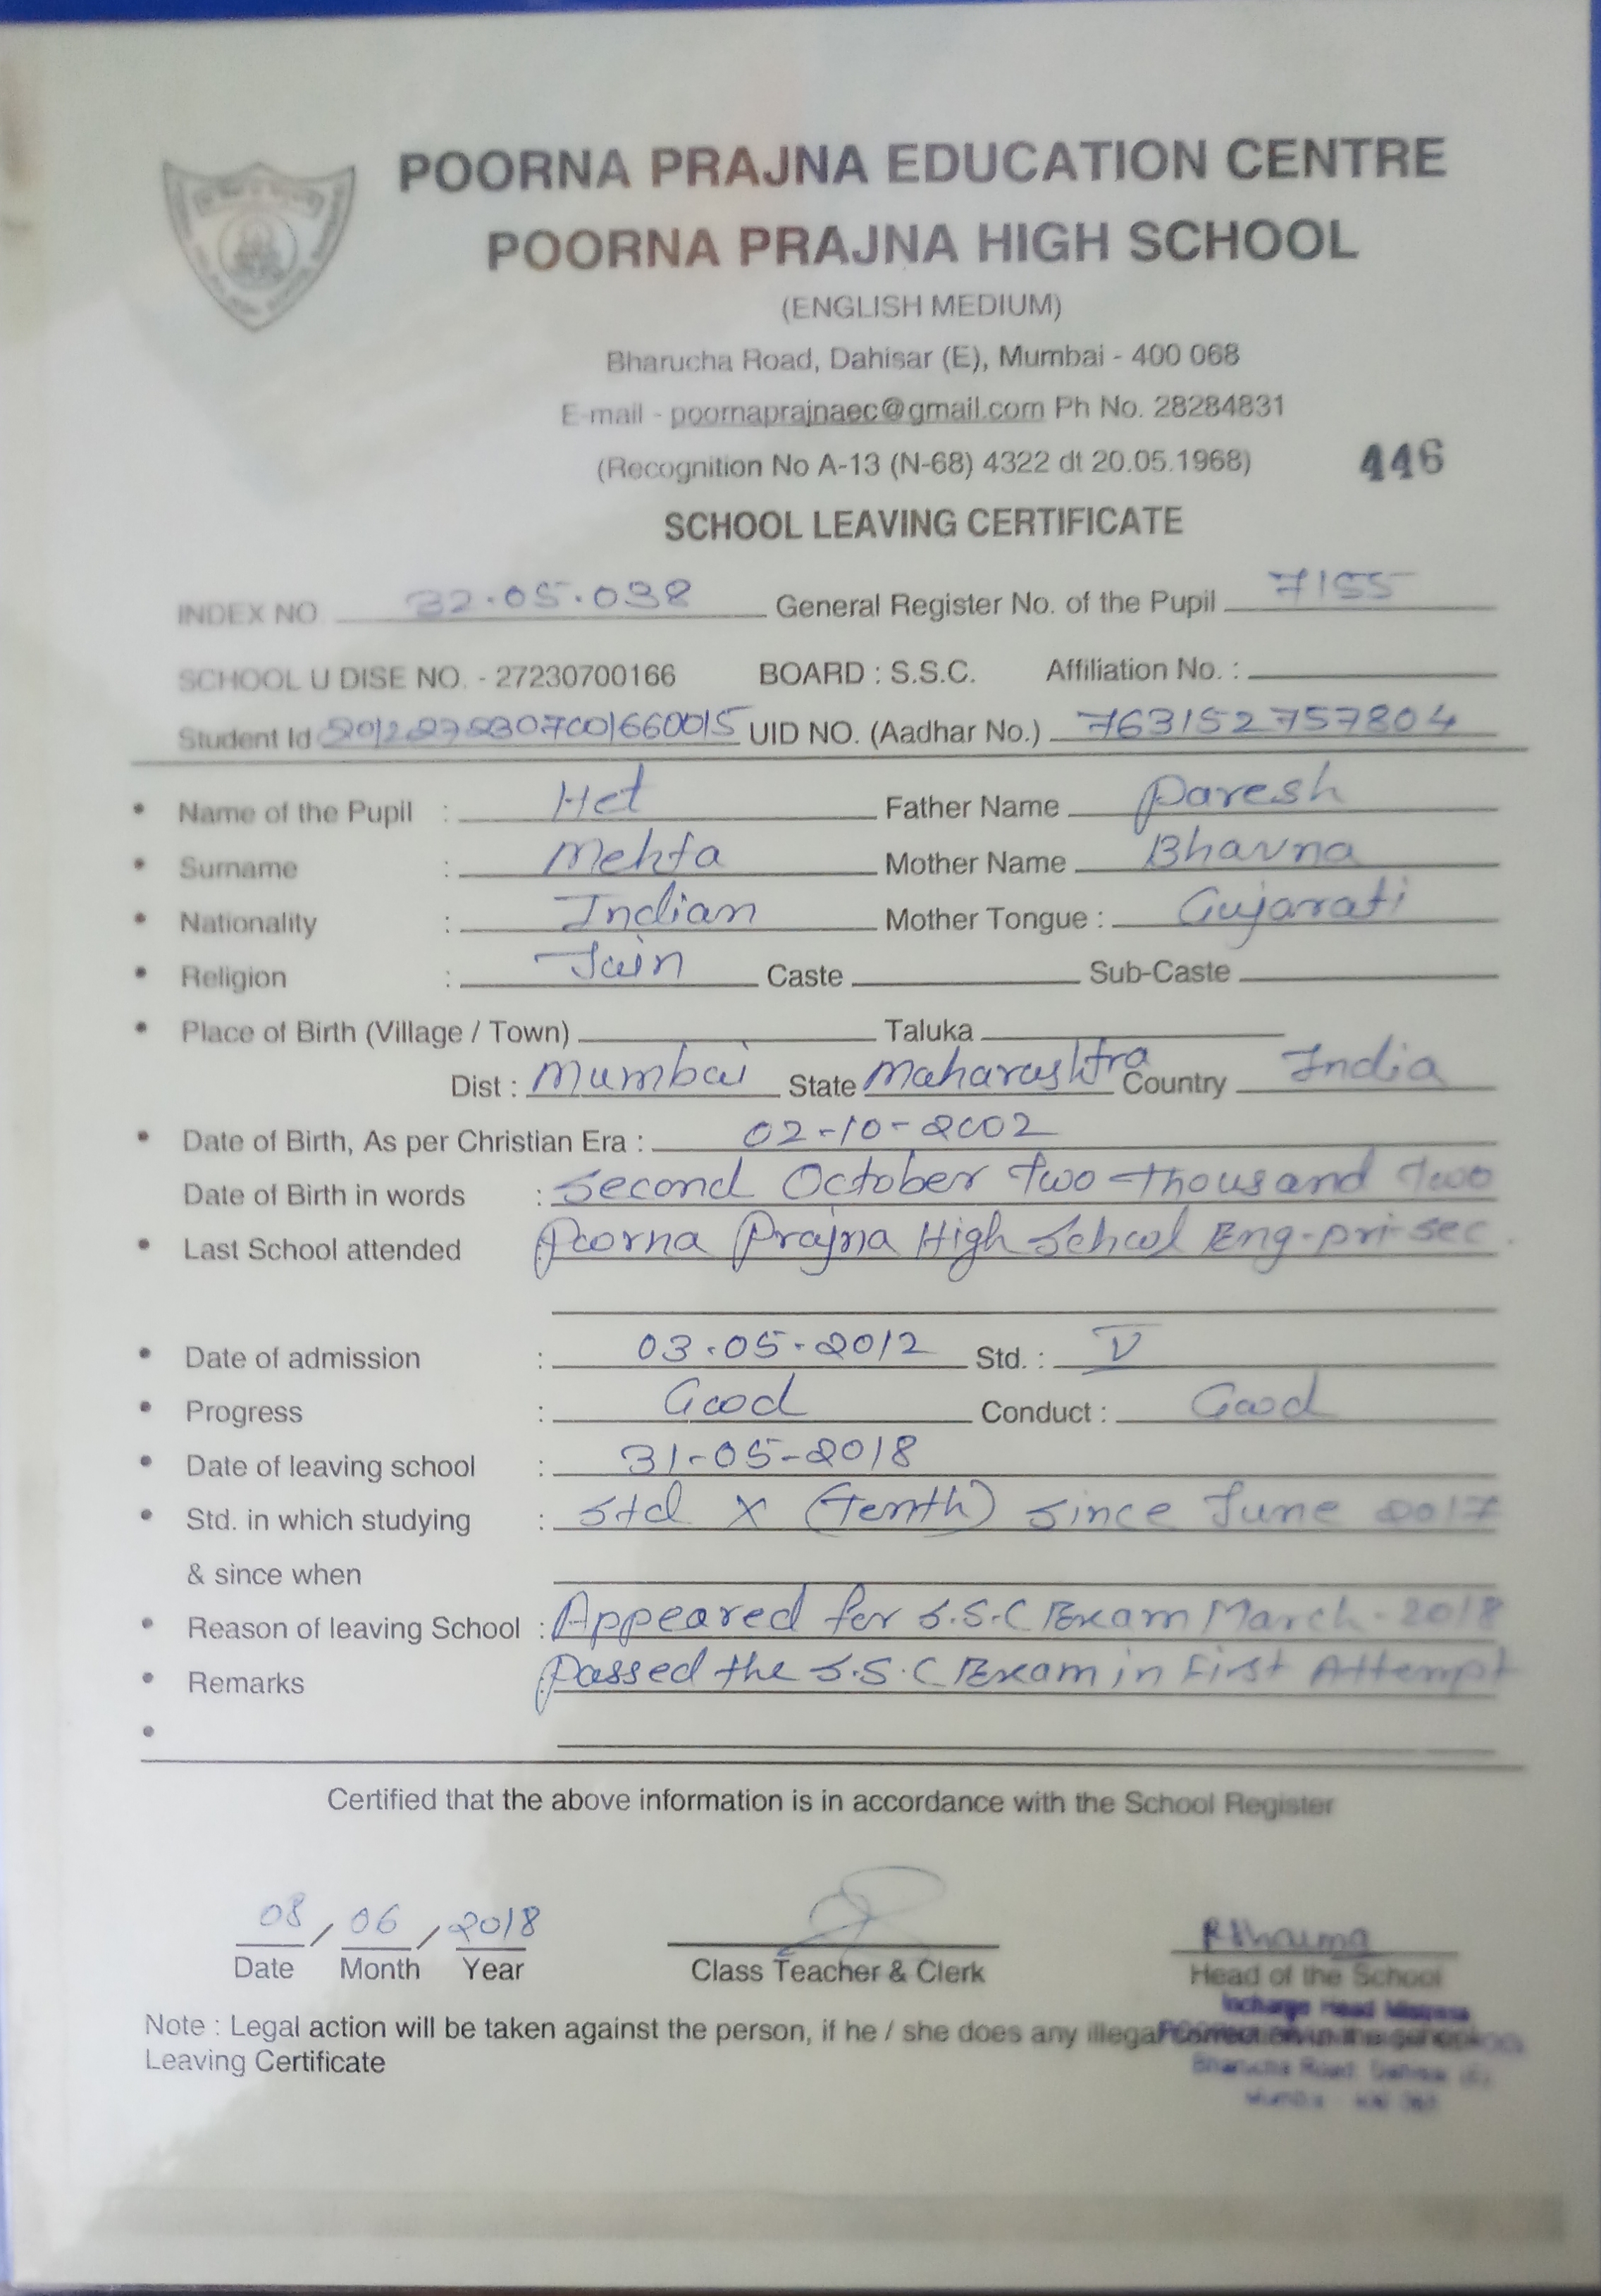 POORNA PRAJNA EDUCATION CENTRE
POORNA PRAJNA HIGH SCHOOL
(ENGLISH MEDIUM)
Bharucha Road, Dahisar (E), Mumbai - 400 068
E-mail - poornaprajnaec@gmail.com Ph No. 28284831
(Recognition No A-13 (N-68) 4322 dt 20.05.1968) 446
SCHOOL LEAVING CERTIFICATE
INDEX NO 32.05.038 General Register No. of the Pupil 7155
SCHOOL U DISE NO. - 27230700166 BOARD : S.S.C. Affiliation No. :
Student Id UID NO. (Aadhar No.) 763152757804
• Name of the Pupil : Het Father Name Paresh
• Surname : Mehta Mother Name Bhavna
• Nationality : Indian Mother Tongue : Gujarati
• Religion : Jain Caste Sub-Caste
• Place of Birth (Village / Town) Taluka
Dist : Mumbai State Maharashtra Country India
• Date of Birth, As per Christian Era : 02-10-2002
Date of Birth in words : Second October Two Thousand Two
• Last School attended Poorna Prajna High School Eng-pri-sec.
• Date of admission : 03.05.2012 Std. : V
• Progress : Good Conduct : Good
• Date of leaving school : 31-05-2018
• Std. in which studying : Std X (Tenth) Since June 2017
& since when
• Reason of leaving School : Appeared for S.S.C Exam March-2018
• Remarks Passed the S.S.C Exam in First Attempt
•
Certified that the above information is in accordance with the School Register
08 / 06 / 2018
Date Month Year Class Teacher & Clerk Head of the School
Incharge Head Mistress
Note : Legal action will be taken against the person, if he / she does any illegal
Leaving Certificate
Bharucha Road, Dahisar (E)